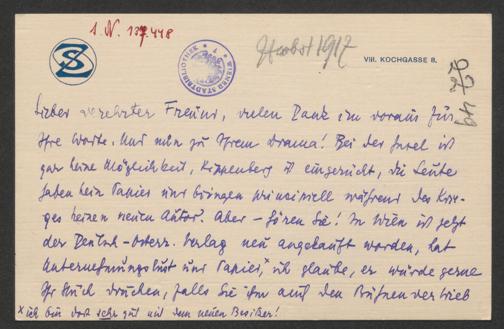 I. N. 137.448
SZ
WIENER STADTBIBLIOTHEK
Herbst 1917
VIII. KOCHGASSE 8.
Lieber verehrter Freund, vielen Dank im voraus für
Ihre Worte. Und nun zu Ihrem Drama! Bei der Insel ist
gar keine Möglichkeit, Kippenberg ist eingerückt, die Leute
haben kein Papier und bringen prinzipiell während des Krie-
ges keinen neuen Autor. Aber – hören Sie! In Wien ist jetzt
der Deutsch-Österr. Verlag neu angekauft worden, hat
Unternehmungslust und Papier,x ich glaube, er würde gerne
Ihr Buch drucken, falls Sie ihm auch den Bühnenvertrieb
x ich bin dort sehr gut mit dem neuen Besitzer!